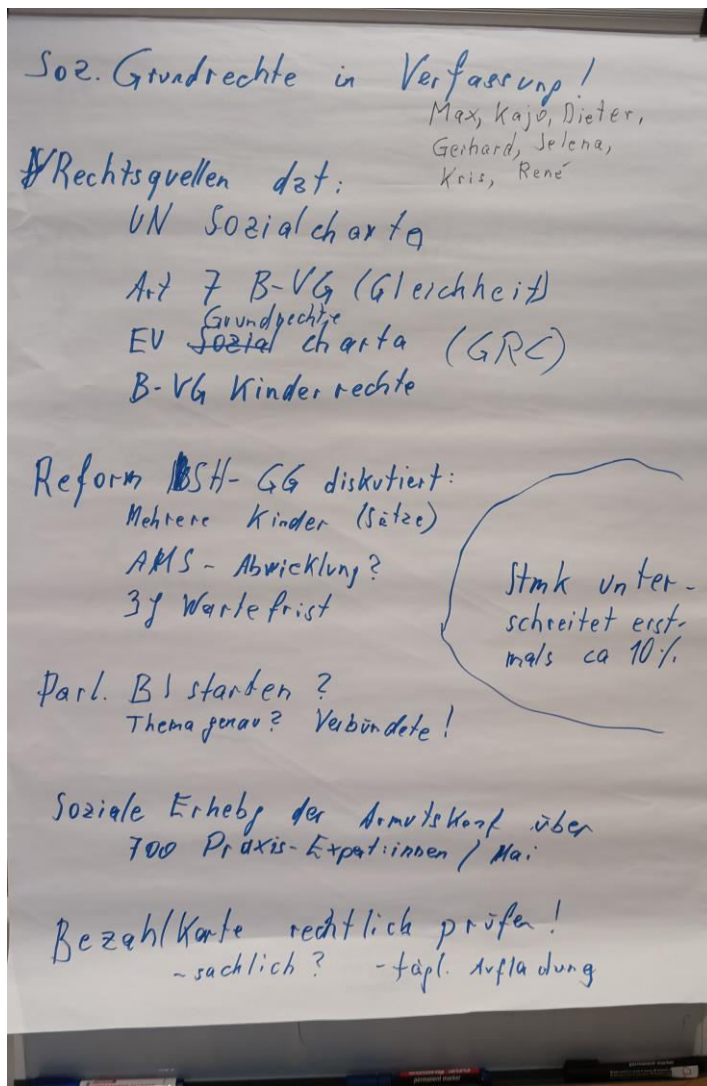 Soz. Grundrechte in Verfassung!
Max, Kajo, Dieter,
Gerhard, Jelena,
Kris, René
Rechtsquellen dzt:
UN Sozialcharta
Art 7 B-VG (Gleichheit)
Grundrechte
EU Sozial charta (GRC)
B-VG Kinderrechte
Reform SH-GG diskutiert:
Mehrere Kinder (Sätze)
AMS - Abwicklung?
3J Wartefrist
Stmk unter-
schreitet erst-
mals ca 10%
Parl. BI starten?
Thema genau? Verbündete!
Soziale Erhebg der Armutskonf über
700 Praxis-Expert:innen / Mai
Bezahlkarte rechtlich prüfen!
- sachlich? - tägl. Aufladung
permanent marker